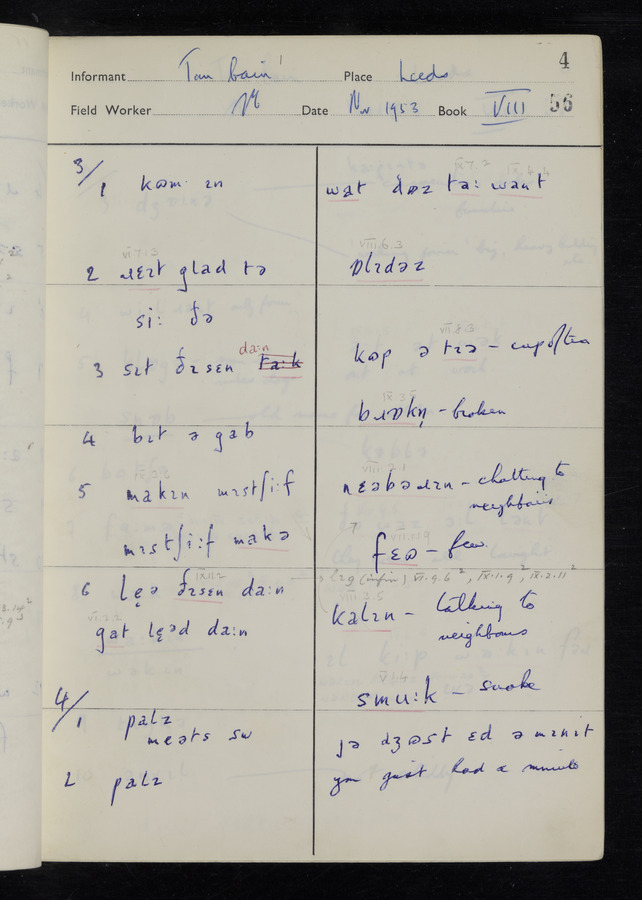 4
Informant Tom Cain Place Leeds
Field Worker Date Nov 1953 Book VIII 56
3/
1 kɷm ɪn
2 ɹɛɪt glad tə
si: ðə
da:n
3 sɪt ðɪsɛn ta:k
4 bɪt ə gab
5 makɪn mɪstʃi:f
mɪstʃi:f makə
6 lɛ̣ə ðɪsɛn da:n
gat lɛ̣əd da:n
4/
1 palɪ
meəts sw
2 palɪ
wat dɷz ta: want
VIII.6.3
ɒlɪdəz
VII.8.3
kɷp ə tɪə – cup of tea
bɹɒkn̩ – broken
nɛəbəɹɪn – chatting to
neighbours
fɛɷ – few
lɪg (infin) VI.9.6², IX.1.9², IX.2.11²
VIII.3.5
kalɪn – talking to
neighbours
smu:k – smoke
jə dʒɷst ɛd ə mɪnɪt
you just had a minute